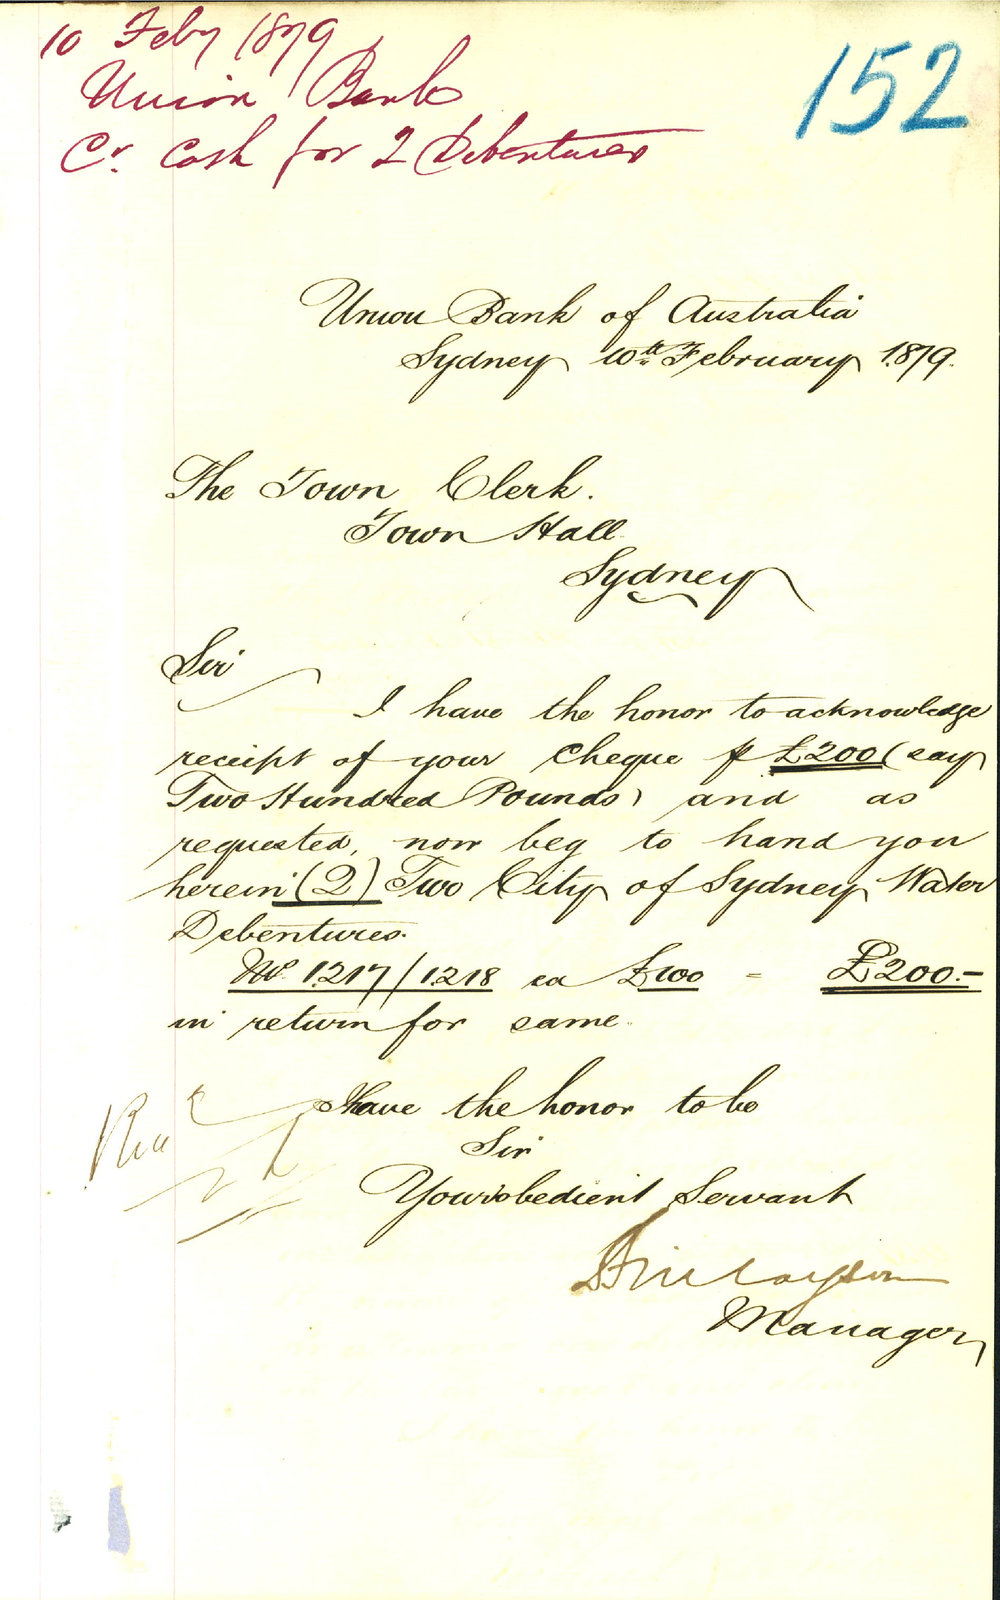 10 Feby 1879
Union Bank
Cr. Cash for 2 Debentures
152
Union Bank of Australia
Sydney 10th February 1879.
The Town Clerk.
Town Hall
Sydney
Sir
I have the honor to acknowledge
receipt of your Cheque p £200 (say
Two Hundred Pounds) and as
requested, now beg to hand you
herein (2) Two City of Sydney Water
Debentures.
No. 1217/1218 ea £100 = £200.-
in return for same.
I have the honor to be
Sir
Your obedient Servant
Manager